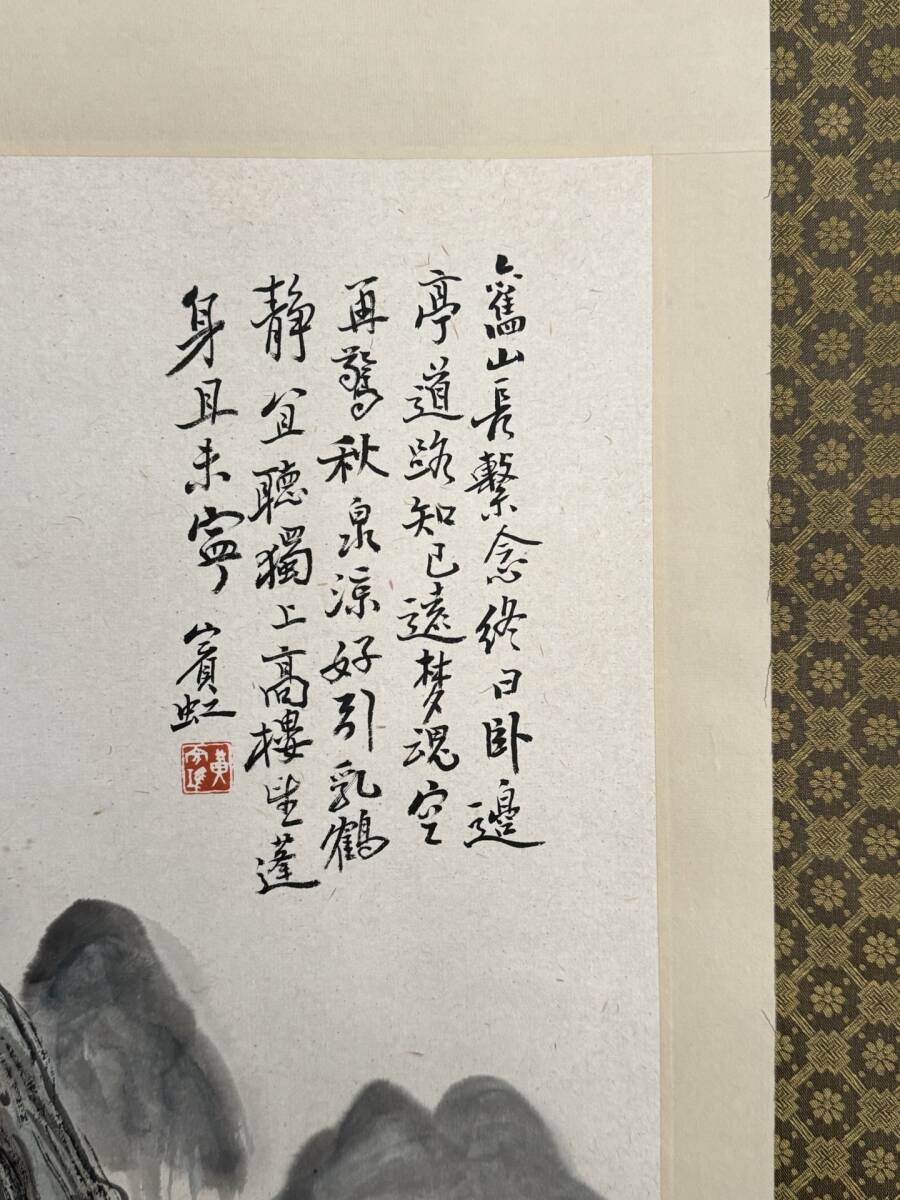 舊山長繫念終日卧邊
亭道路知已遠夢魂空
再驚秋泉涼好引乳鶴
静宜聽獨上高樓望蓬
身且未寧 賓虹
黄